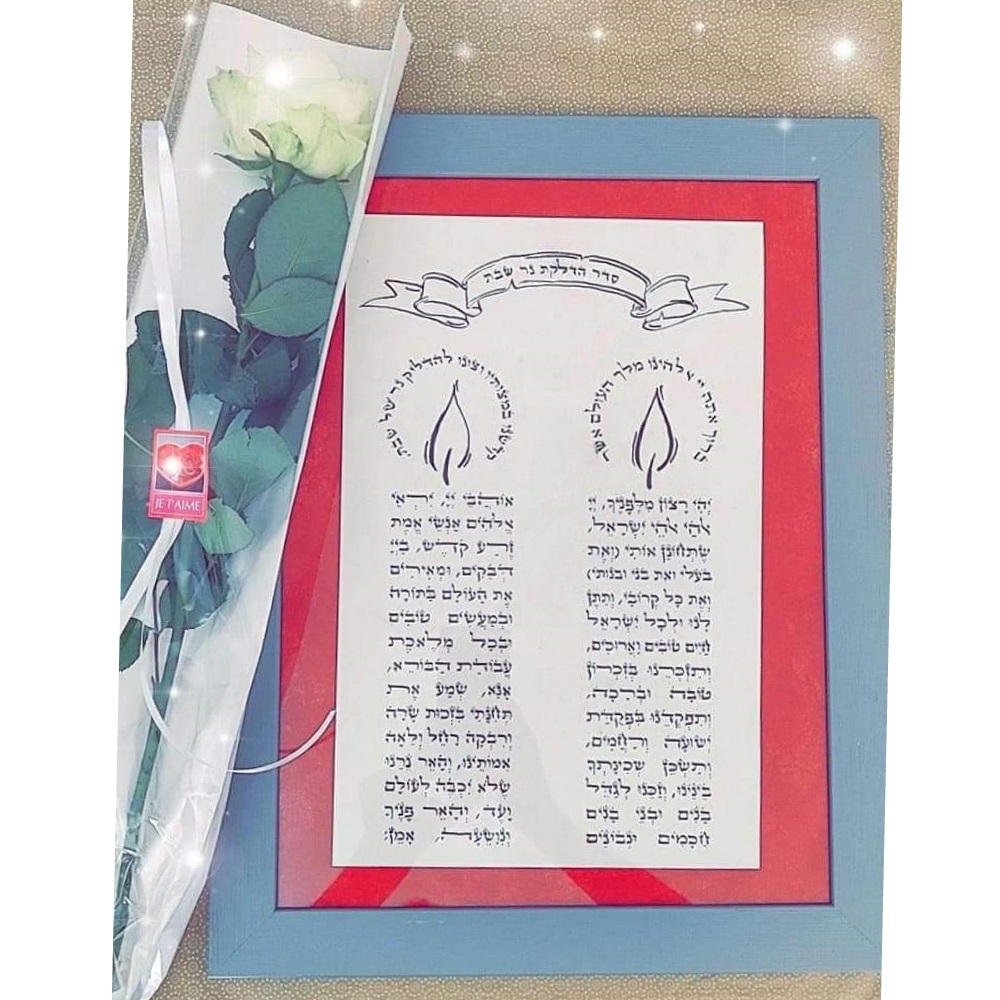 סדר הדלקת נר שבת
ברוך אתה יי אלהינו מלך העולם אשר
קדשנו במצותיו וצונו להדליק נר של שבת.
יְהִי רָצוֹן מִלְּפָנֶיךָ, יְיָ
אֱלֹהַי וֵאלֹהֵי יִשְׂרָאֵל,
שֶׁתְּחוֹנֵן אוֹתִי (וְאֶת
בעלי ואת בני ובנותי)
וְאֶת כָּל קְרוֹבַי, וְתִתֵּן
לָנוּ וּלְכָל יִשְׂרָאֵל
חַיִּים טוֹבִים וַאֲרוּכִים,
וְתִזְכְּרֵנוּ בְּזִכְרוֹן
טוֹבָה וּבְרָכָה,
וְתִפְקְדֵנוּ בִּפְקֻדַּת
יְשׁוּעָה וְרַחֲמִים,
וְתַשְׁכֵּן שְׁכִינָתְךָ
בֵּינֵינוּ, וְזַכֵּנוּ לְגַדֵּל
בָּנִים וּבְנֵי בָנִים
חֲכָמִים וּנְבוֹנִים
אוֹהֲבֵי יְיָ, יִרְאֵי
אֱלֹהִים אַנְשֵׁי אֱמֶת
זֶרַע קֹדֶשׁ, בַּייָ
דְּבֵקִים, וּמְאִירִים
אֶת הָעוֹלָם בַּתּוֹרָה
וּבְמַעֲשִׂים טוֹבִים
וּבְכָל מְלֶאכֶת
עֲבוֹדַת הַבּוֹרֵא,
אָנָּא, שְׁמַע אֶת
תְּחִנָּתִי בִּזְכוּת שָׂרָה
וְרִבְקָה רָחֵל וְלֵאָה
אִמּוֹתֵינוּ, וְהָאֵר נֵרֵנוּ
שֶׁלֹּא יִכְבֶּה לְעוֹלָם
וָעֶד, וְהָאֵר פָּנֶיךָ
וְנִוָּשֵׁעָה, אָמֵן:
JE T'AIME